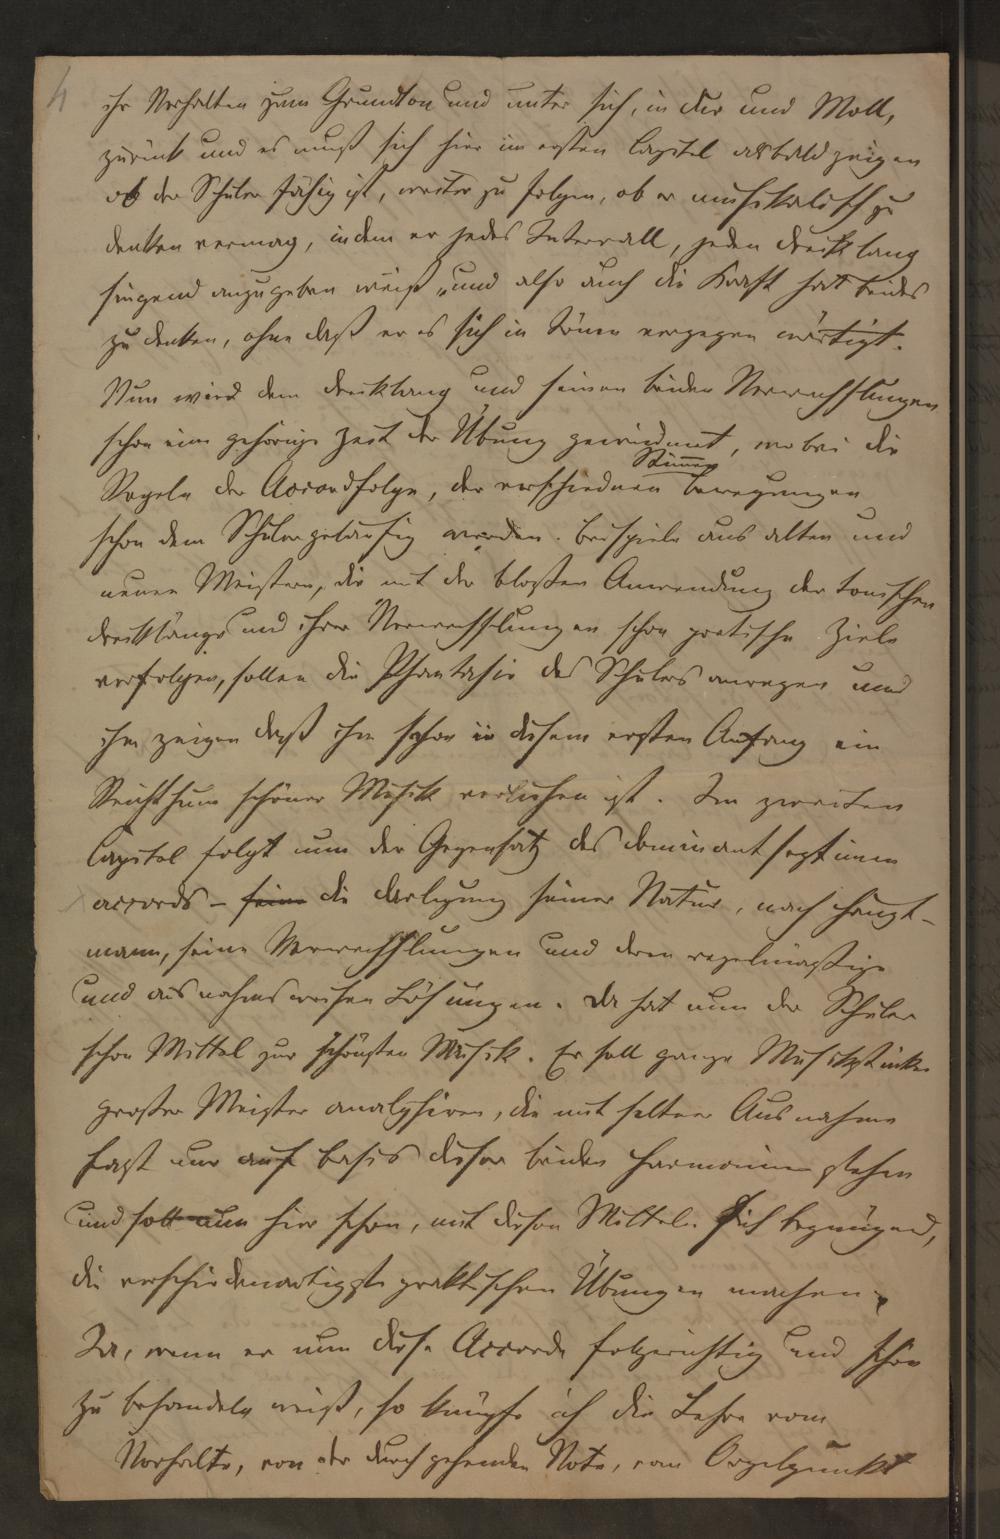 4
ihr Verhalten zum Grundton und unter sich, in Dur und Moll,
zurück und es muß sich hier im ersten Capitel alsbald zeigen
ob der Schüler fähig ist, weiter zu folgen, ob er musikalisch zu
denken vermag, indem er jedes Intervall, jeden Dreiklang
singend anzugeben weiß, und also auch die Kraft hat beides
zu denken, ohne daß er es sich in Tönen vergegenwärtigt.
Nun wird dem Dreiklang und seinen beiden Verwechslungen
schon eine gehörige Zeit der Übung gewidmet, wobei die
Stimmen
Regeln der Accordfolge, der verschiednen bewegungen
schon dem Schüler geläufig werden. Beispiele aus alten und
neuen Meistern, die mit der bloßen Anwendung der tonischen
Dreiklänge und ihrer Verwechslungen schon poetische Ziele
verfolgen, sollen die Phantasie des Schülers anregen und
ihm zeigen daß ihm schon in diesem ersten Anfang ein
Reichthum schöner Musik verliehen ist. Im zweiten
Capitel folgt nun der Gegensatz des Dominantseptimen
accords – seine die Darlegung seiner Natur, nach Haupt-
mann, seine Verwechslungen und deren regelmäßige
und ausnahmsweisen Lösungen. Da hat nun der Schüler
schon Mittel zur schönsten Musik. Er soll ganze Musikstücke
großer Meister analysiren, die mit seltner Ausnahme
fast nur auf Basis dieser beiden Harmonien stehen
und soll nun hier schon, mit diesen Mitteln sich begnügend,
die verschiedenartigste praktischen Übungen machen.
Ja, wenn er nun diese Accorde folgerichtig und schön
zu behandeln weiß, so knüpfe ich die Lehre vom
Vorhalte, von der durchgehenden Note, vom Orgelpunkt